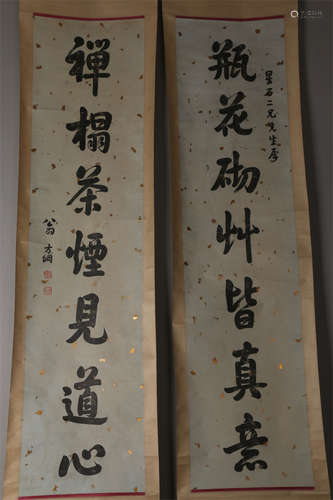 瓶花砌艸皆真意
星石二兄先生属
禅榻茶煙見道心
翁方綱